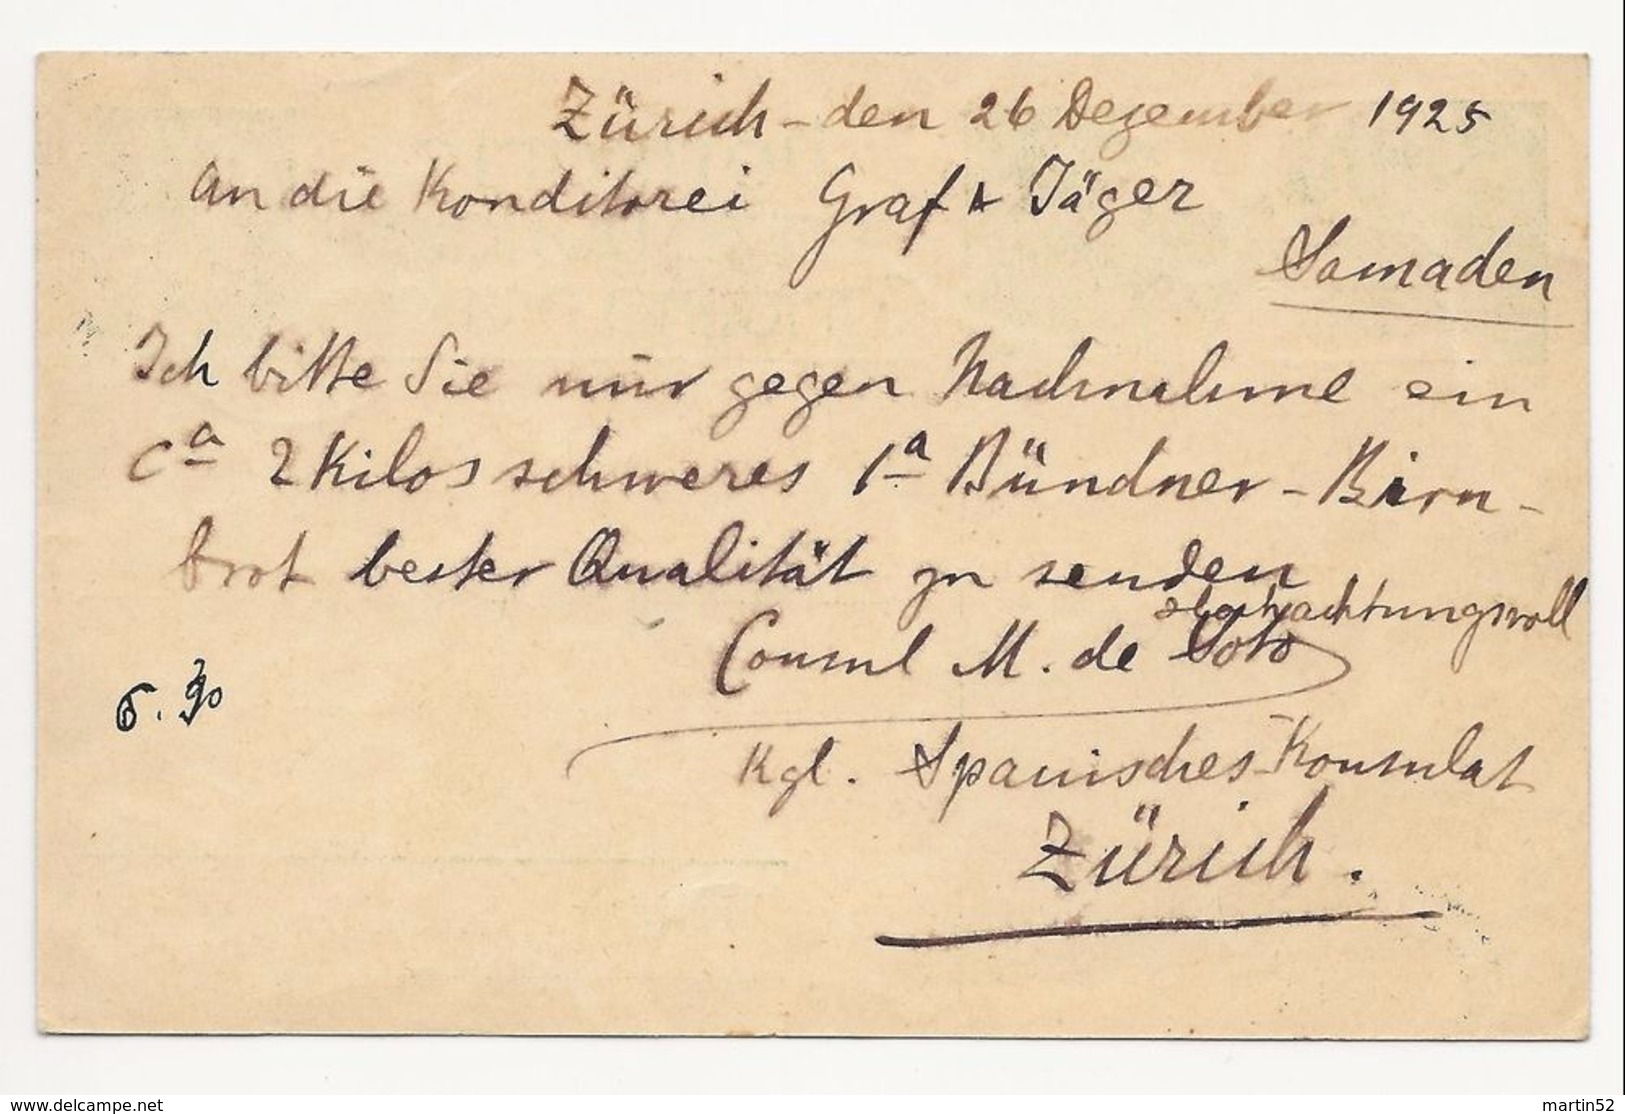 Zürich - den 26 Dezember 1925
An die Konditorei Graf & Jäger
Samaden
Ich bitte Sie mir gegen Nachnahme ein
ca 2 Kilos schweres 1a Bündner-Birn-
brot bester Qualität zu senden
Hochachtungsvoll
Consul M. de Soto
6.30
Kgl. Spanisches-Konsulat
Zürich.
www.delcampe.net
martin52